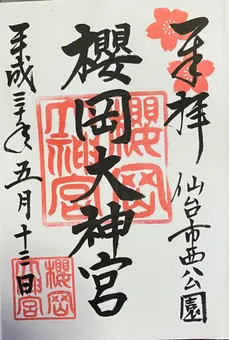 奉拝
仙台市西公園
櫻岡大神宮
櫻岡大神宮
平成三十年五月十三日
櫻岡大神宮